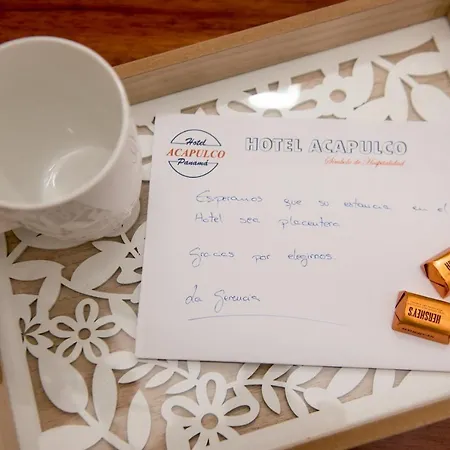 Hotel
ACAPULCO
Panamá
HOTEL ACAPULCO
Símbolo de Hospitalidad
Esperamos que su estancia en el
Hotel sea placentera.
Gracias por elegirnos.
La Gerencia
HERSHEY'S